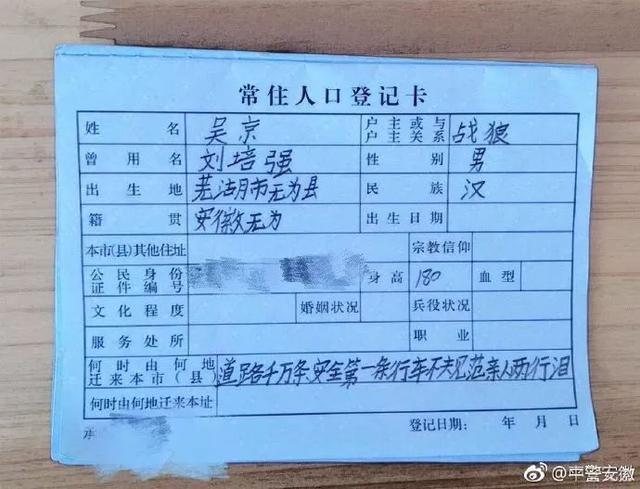 常住人口登记卡
姓名 吴京 户主或与户主关系 战狼
曾用名 刘培强 性别 男
出生地 芜湖市无为县 民族 汉
籍贯 安徽无为 出生日期
本市(县)其他住址 宗教信仰
公民身份证件编号 身高 180 血型
文化程度 婚姻状况 兵役状况
服务处所 职业
何时由何地迁来本市(县) 道路千万条安全第一条行车不规范亲人两行泪
何时由何地迁来本址
登记日期: 年 月 日
@平警安徽